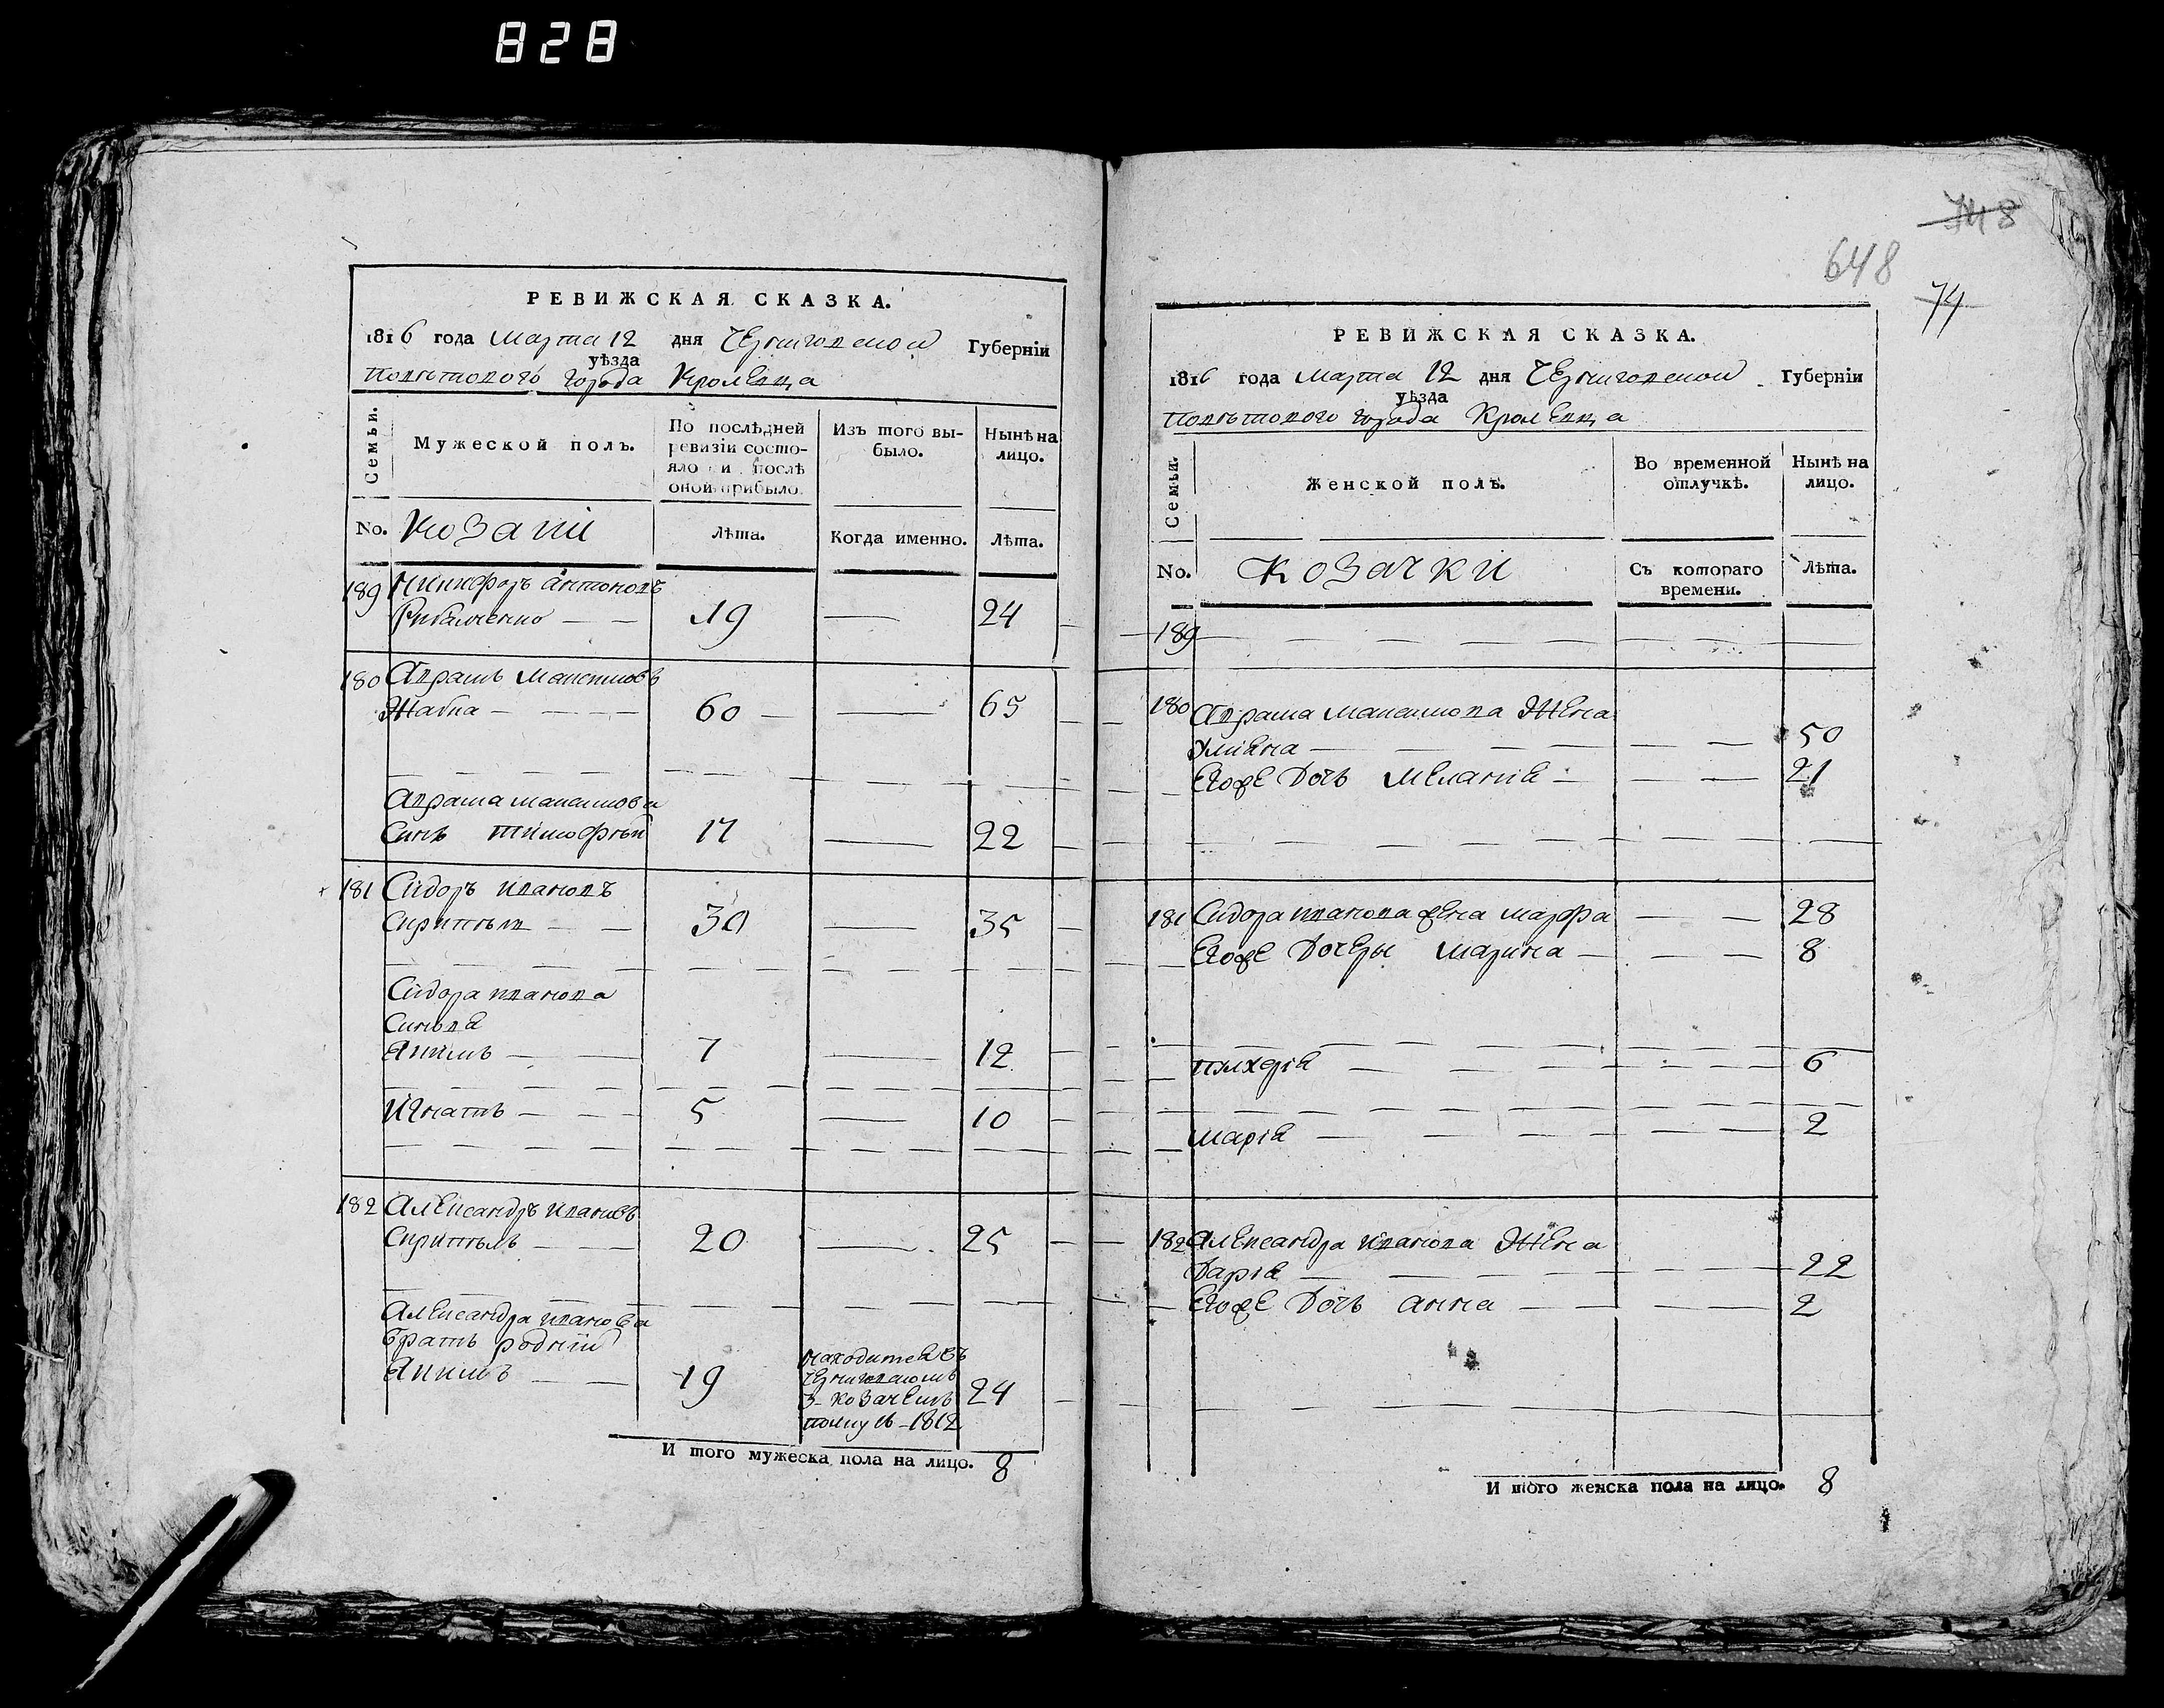 828
748
648
74
РЕВИЖСКАЯ СКАЗКА.
1816 года Марта 12 дня Черниговской Губерніи
уѣзда
Повѣтового города Кролевца
Семьи.
Мужеской полъ.
По послѣдней ревизіи состо-
яло и послѣ
оной прибыло.
Изъ того вы-
было.
Нынѣ на
лицо.
No. Козаки
Лѣта.
Когда именно.
Лѣта.
189 Никифоръ Антоновъ
Рибалченко 19 24
180 Аврамъ Максимовъ
Жабка 60 65
Аврама Максимова
Синъ Тимофѣй 17 22
181 Сидоръ Ивановъ
30 35
Сидора Иванова
Синовя
Якимъ 7 12
Игнатъ 5 10
182 Александръ Ивановъ
20 25
Александра Иванова
братъ родній
Якимъ 19 24
находится въ
Черниговскомъ
3 козачемъ
полку съ 1812
И того мужеска пола на лицо. 8
РЕВИЖСКАЯ СКАЗКА.
1816 года Марта 12 дня Черниговской Губерніи
уѣзда
Повѣтового города Кролевца
Семьи.
Женской полъ.
Во временной
отлучкѣ.
Нынѣ на
лицо.
No. Козачки
Съ котораго
времени.
Лѣта.
189
180 Аврама Максимова Жена
Уліяна 50
Егоже Дочь Меланія 21
181 Сидора Иванова жена Марфа 28
Егоже Дочеры Марина 8
Пулхерія 6
Марія 2
182 Александра Иванова Жена
Дарія 22
Егоже Дочь Анна 2
И того женска пола на лицо. 8